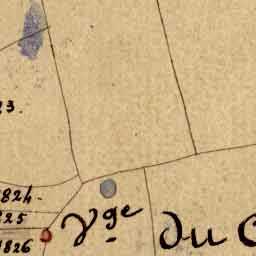 23.
1824.
825
1826
Vge du